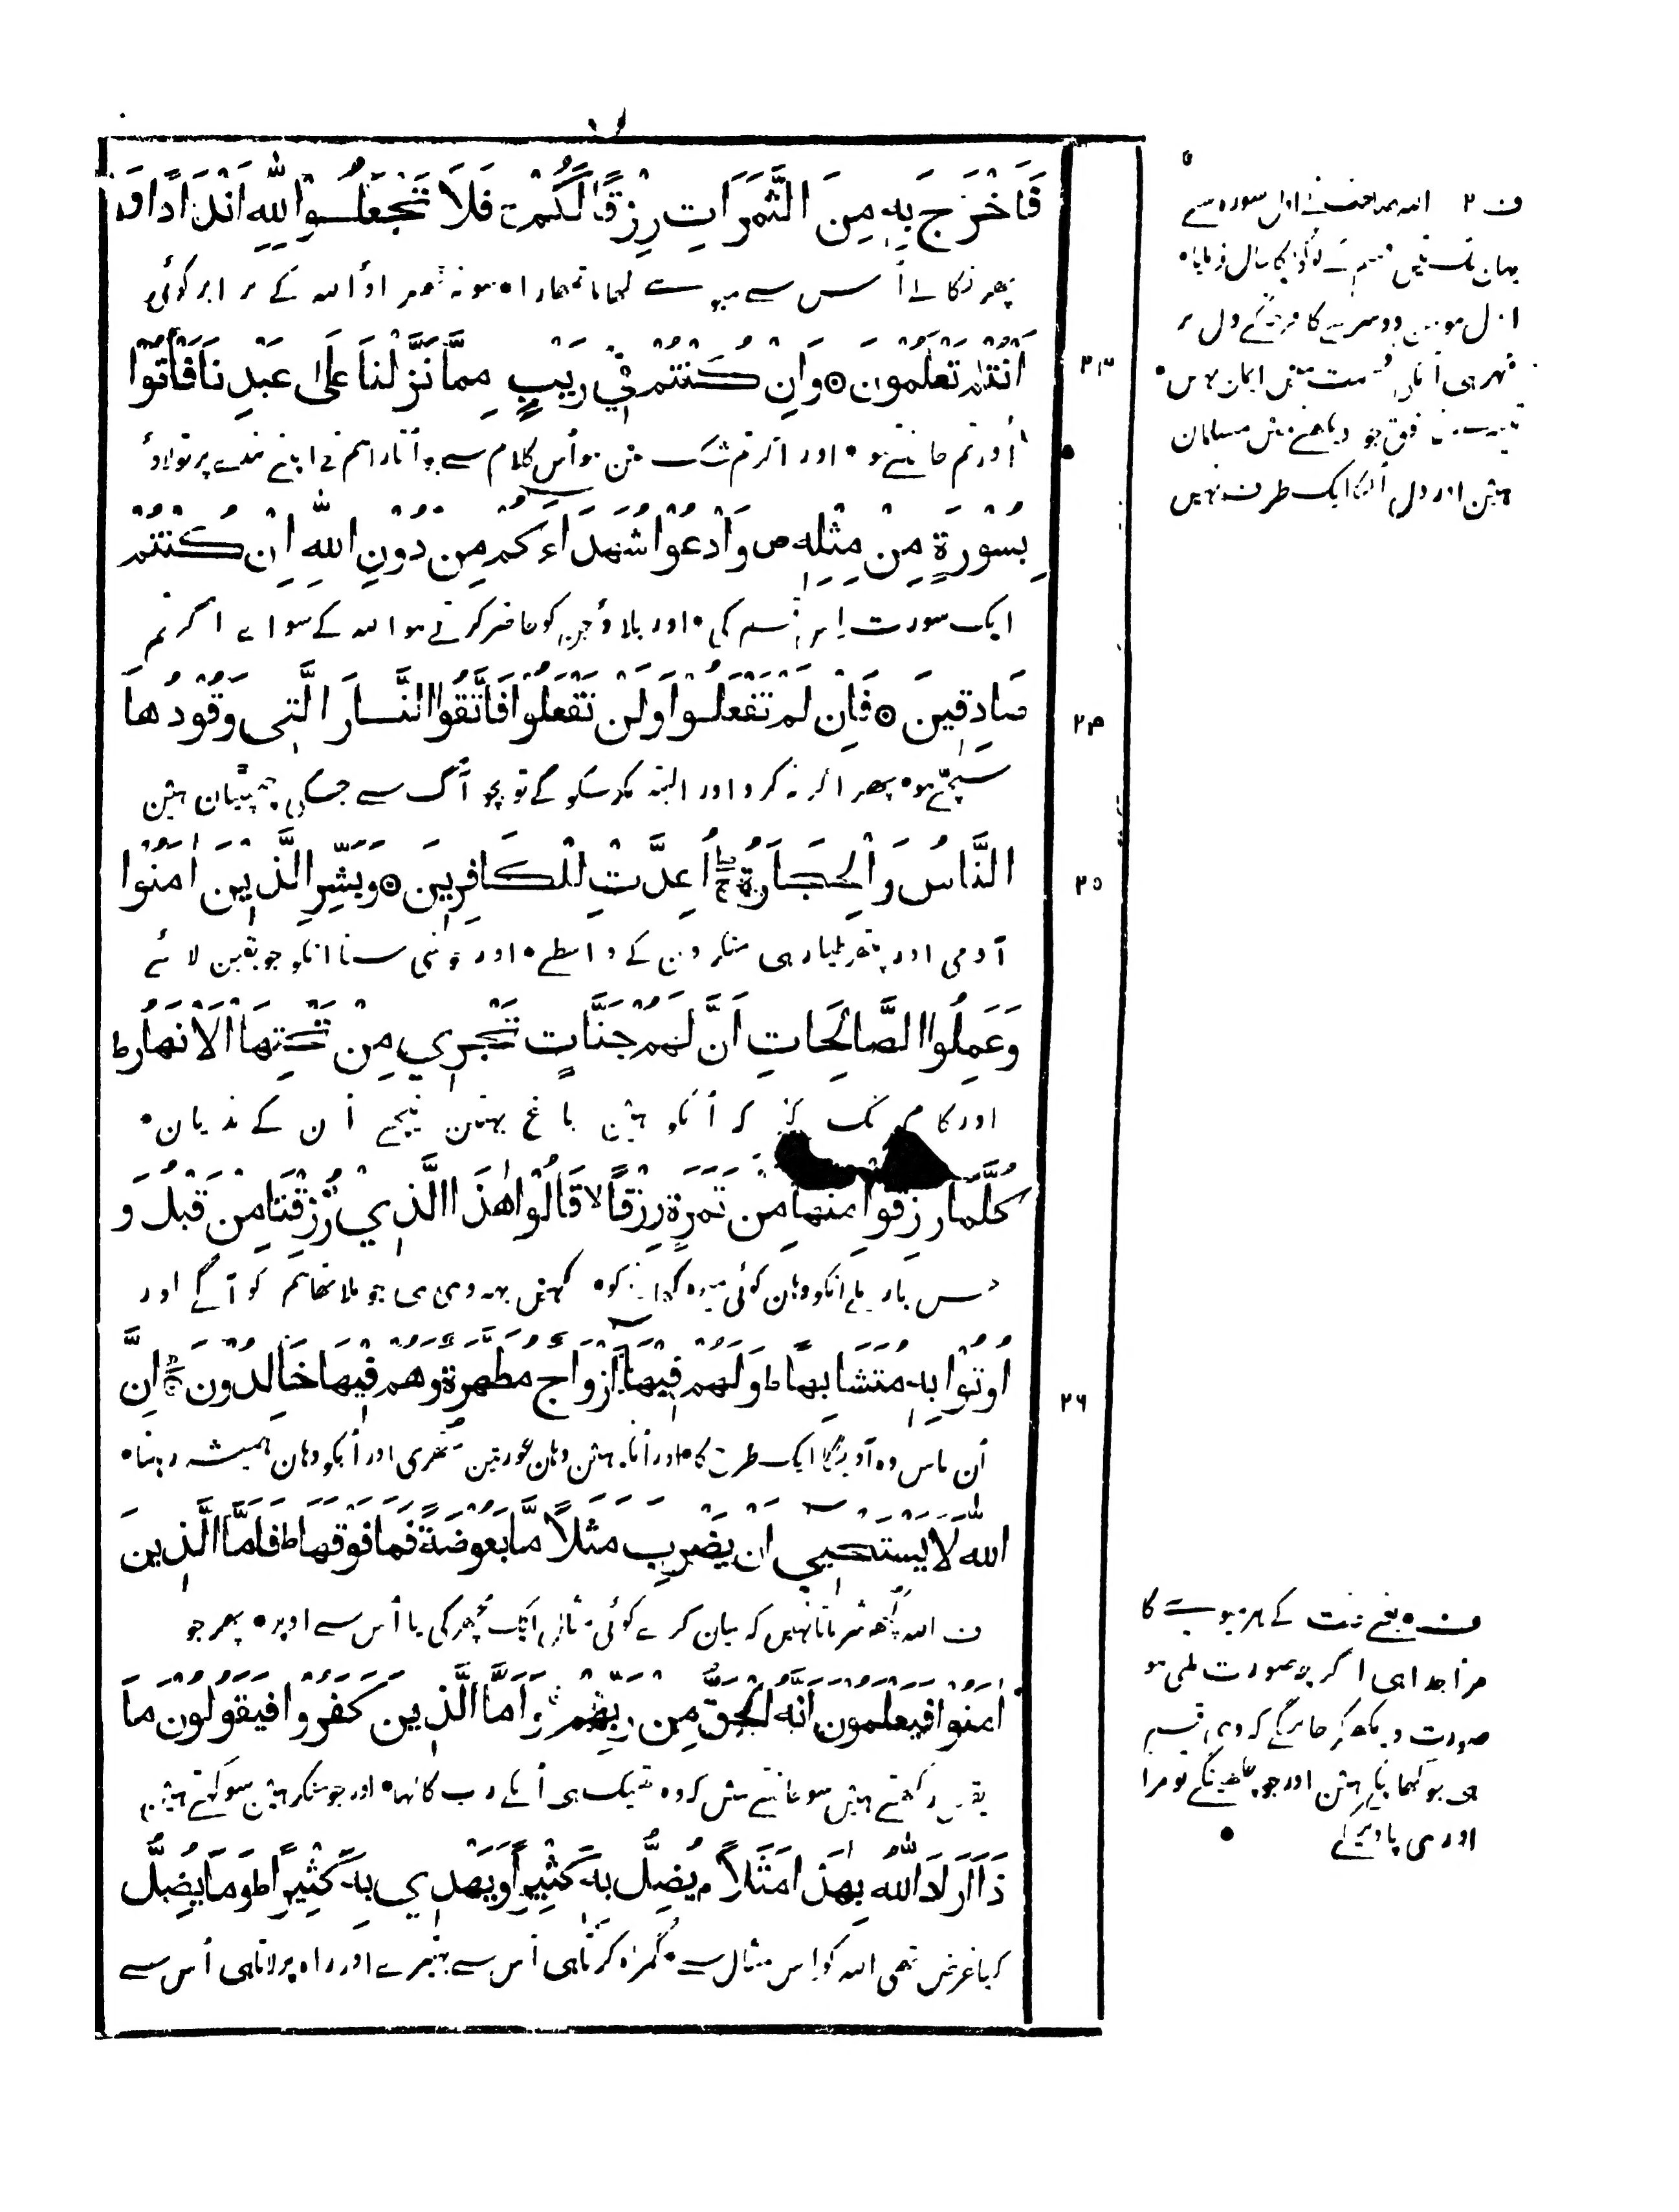 فَأَخْرَجَ بِهِ مِنَ الثَّمَرَاتِ رِزْقًا لَكُمْ فَلَا تَجْعَلُوا لِلَّهِ أَنْدَادًا وَ
پھر نکالے اُس سے میوے کھانا تمھارا • سو نہ ٹھہراؤ اللہ کے برابر کوئی
أَنْتُمْ تَعْلَمُونَ ۝ وَإِنْ كُنْتُمْ فِي رَيْبٍ مِمَّا نَزَّلْنَا عَلَىٰ عَبْدِنَا فَأْتُوا
۲۳
اور تم جانتے ہو • اور اگر تم شک مین ہو اُس کلام سے جو اُتارا ہم نے اپنے بندے پر تو لاؤ
بِسُورَةٍ مِنْ مِثْلِهِ ص وَادْعُوا شُهَدَاءَكُمْ مِنْ دُونِ اللَّهِ إِنْ كُنْتُمْ
ایک سورت اِس قسم کی • اور بلاؤ جن کو حاضر کرتے ہو اللہ کے سوائے اگر تم
صَادِقِينَ ۝ فَإِنْ لَمْ تَفْعَلُوا وَلَنْ تَفْعَلُوا فَاتَّقُوا النَّارَ الَّتِي وَقُودُهَا
۲۴
سچّے ہو • پھر اگر نہ کرو اور البتہ نکر سکوگے تو بچو آگ سے جسکی چھپٹیان ہین
النَّاسُ وَالْحِجَارَةُ أُعِدَّتْ لِلْكَافِرِينَ ۝ وَبَشِّرِ الَّذِينَ آمَنُوا
۲۵
آدمی اور پتھر طیار ہی منکرون کے واسطے • اور خوشی سنا انکو جو یقین لائے
وَعَمِلُوا الصَّالِحَاتِ أَنَّ لَهُمْ جَنَّاتٍ تَجْرِي مِنْ تَحْتِهَا الْأَنْهَارُ ط
اور کام نیک کئے کہ اُنکو ہین باغ بہتین نیچے اُن کے ندیان •
كُلَّمَا رُزِقُوا مِنْهَا مِنْ ثَمَرَةٍ رِزْقًا لا قَالُوا هٰذَا الَّذِي رُزِقْنَا مِنْ قَبْلُ وَ
جس بار ملے انکو وہان کوئی میوہ کھانے کو • کہین یہہ وہی ہی جو ملا تھا ہم کو آگے اور
أُوتُوا بِهِ مُتَشَابِهًا ط وَلَهُمْ فِيهَا أَزْوَاجٌ مُطَهَّرَةٌ وَهُمْ فِيهَا خَالِدُونَ إِنَّ
۲۶
اُن پاس وہ آویگا ایک طرح کا • اور اُنکو ہین وہان عورتین ستھری اور اُنکو وہان ہمیشہ رہنا •
اللَّهَ لَا يَسْتَحْيِي أَنْ يَضْرِبَ مَثَلًا مَّا بَعُوضَةً فَمَا فَوْقَهَا ط فَأَمَّا الَّذِينَ
ف اللہ کچھ شرماتا نہین کہ بیان کرے کوئی مثال ایک مچھر کی یا اُس سے اوپر • پھر جو
آمَنُوا فَيَعْلَمُونَ أَنَّهُ الْحَقُّ مِنْ رَبِّهِمْ وَأَمَّا الَّذِينَ كَفَرُوا فَيَقُولُونَ مَا
یقین رکھتے ہین سو جانتے ہین کہ وہ ٹھیک ہی اُنکے رب کا کہا • اور جو منکر ہین سو کہتے ہین
ذَا أَرَادَ اللَّهُ بِهٰذَا مَثَلًا م يُضِلُّ بِهِ كَثِيرًا وَيَهْدِي بِهِ كَثِيرًا ط وَمَا يُضِلُّ
کیا غرض تھی اللہ کو اِس مثال سے • گمراہ کرتا ہی اُس سے بہتیرے اور راہ پر لاتا ہی اُس سے
ف ۲ اللہ صاحب نے اول سورہ سے
یہان تک تین قسم کے لوگون کا حال فرمایا •
اول مومن دوسرے کافر جنکے دل پر
مہر ہی ایمان نہ لاوین •
تیسرے منافق جو دیکھنے مین مسلمان
ہین اور دل اُنکا ایک طرف نہین
ف • یعنے جنت کے ہر میوے کا
مزا جدا ہی اگرچہ صورت ملی ہو
صورت دیکھ کر جانینگے کہ وہی قسم
ہی جو کھا چکے ہین اور جو چکھینگے تو مزا
اور ہی پاوینگے •